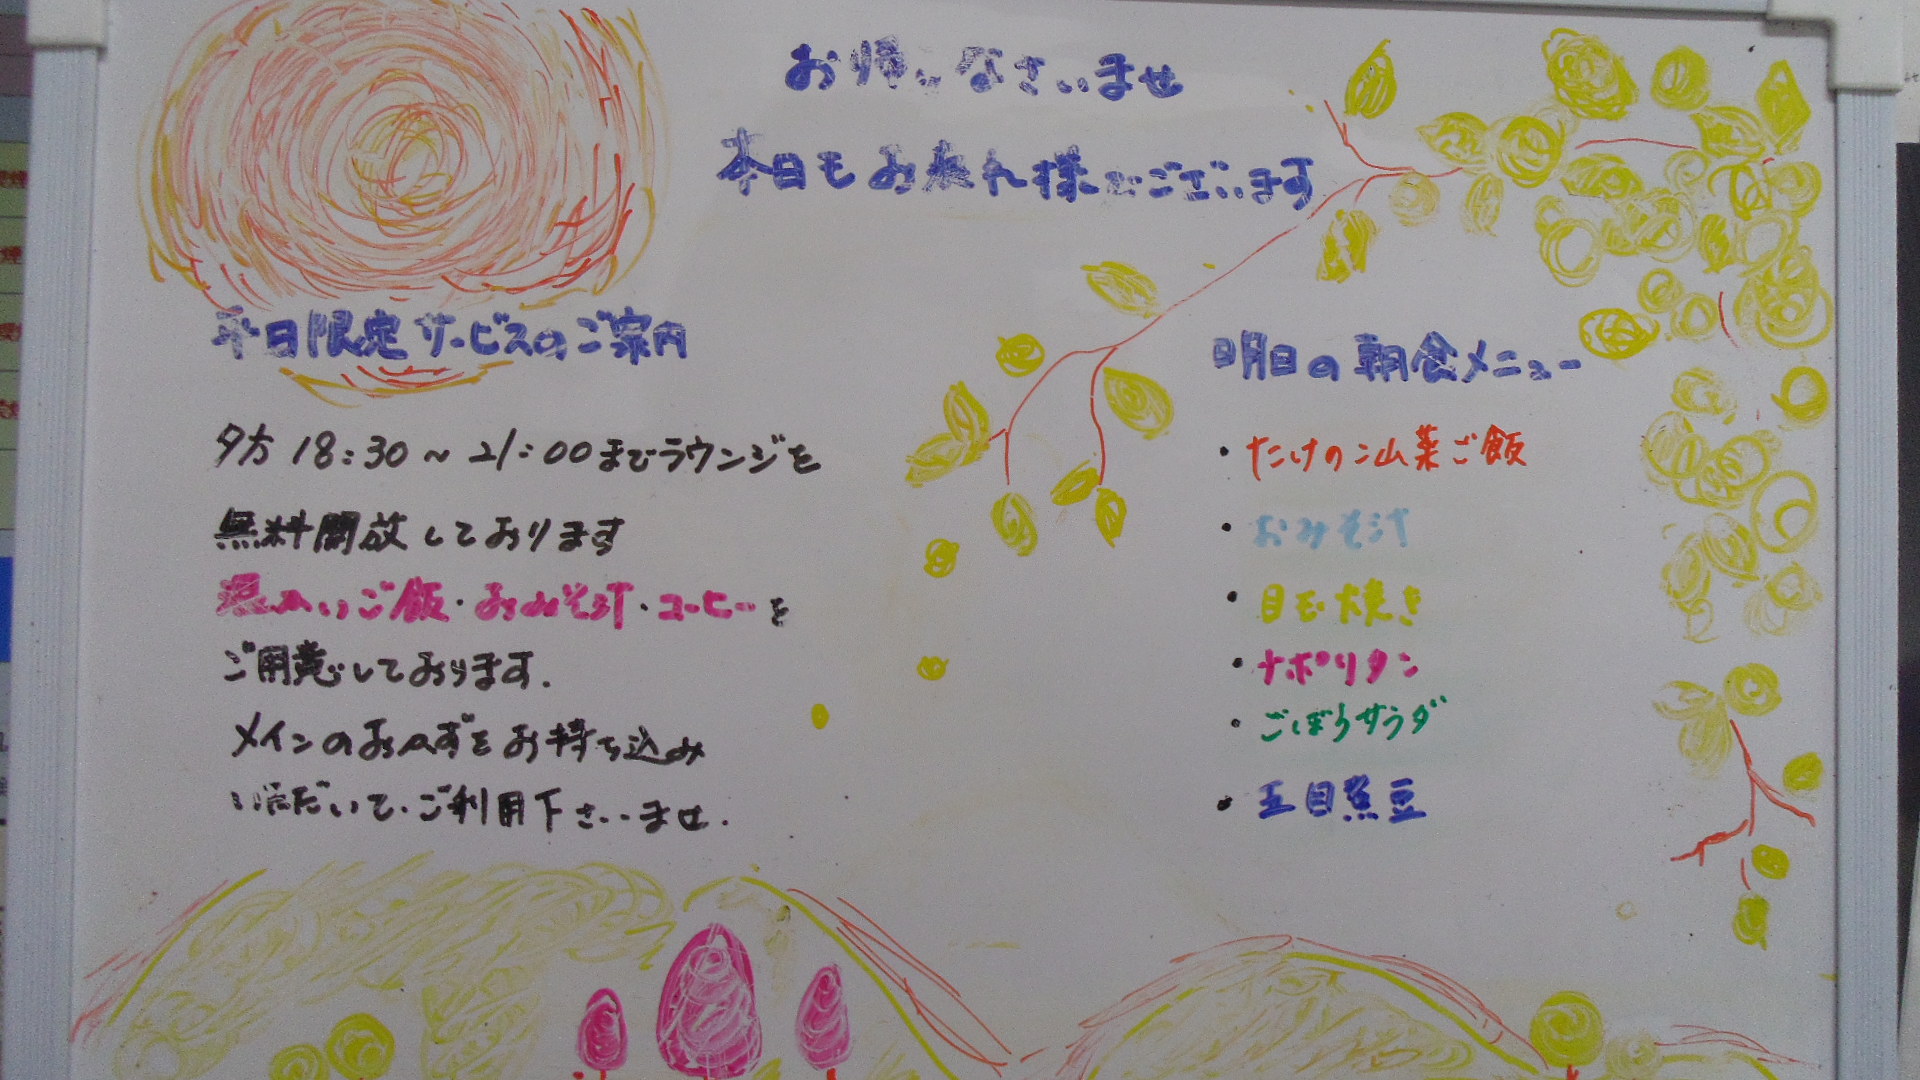 お帰りなさいませ
本日もお疲れ様でございます
平日限定サービスのご案内
夕方 18:30～21:00までラウンジを
無料開放しております
温かいご飯・おみそ汁・コーヒーを
ご用意しております.
メインのおかずをお持ち込み
いただいて、ご利用下さいませ.
明日の朝食メニュー
・たけのこ山菜ご飯
・おみそ汁
・目玉焼き
・ナポリタン
・ごぼうサラダ
・五目煮豆